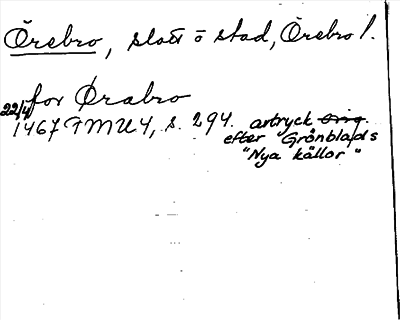 Örebro, slott o stad, Örebro l.
for Ørabro
22/4
1467 FMU 4, s. 294. avtryck orig.
efter Grönblads
"Nya källor"